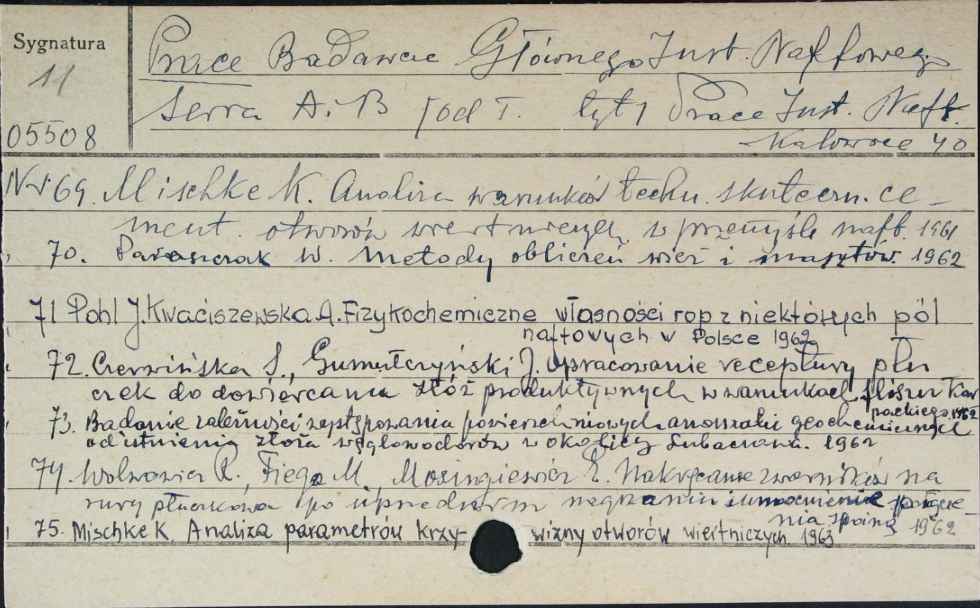 Sygnatura
11
05508
Prace Badawcze Głównego Inst. Naftowego
Seria A i B od T. tyt Prace Inst. Naft.
Katowice 40
Nr 69. Mischke K. Analiza warunków techn. skuteczn. ce-
ment. otworów wiertniczych w przemyśle naft. 1961
70. W. Metody obliczeń wież i masztów 1962
71 Pohl J. Kwaciszewska A. Fizykochemiczne własności rop z niektórych pól
naftowych w Polsce 1962
72. Czerwińska S., Gumułczyński J. Opracowanie receptury płu
czek do dowiercania złóż produktywnych w warunkach fliszu Kar
packiego 1962
73. Badanie zależności występowania powierzchniowych anomalii geochemicznych
od istnienia złoża węglowodorów w okolicy Lubaczowa. 1962
74 Wolwowicz R., Fiega M., Mosingiewicz E. Nakręcanie zworników na
rury płuczkowe po uprzednim nagrzaniu i umocnienie połącze
nia spoiną 1962
75. Mischke K. Analiza parametrów krzy- wizny otworów wiertniczych. 1963